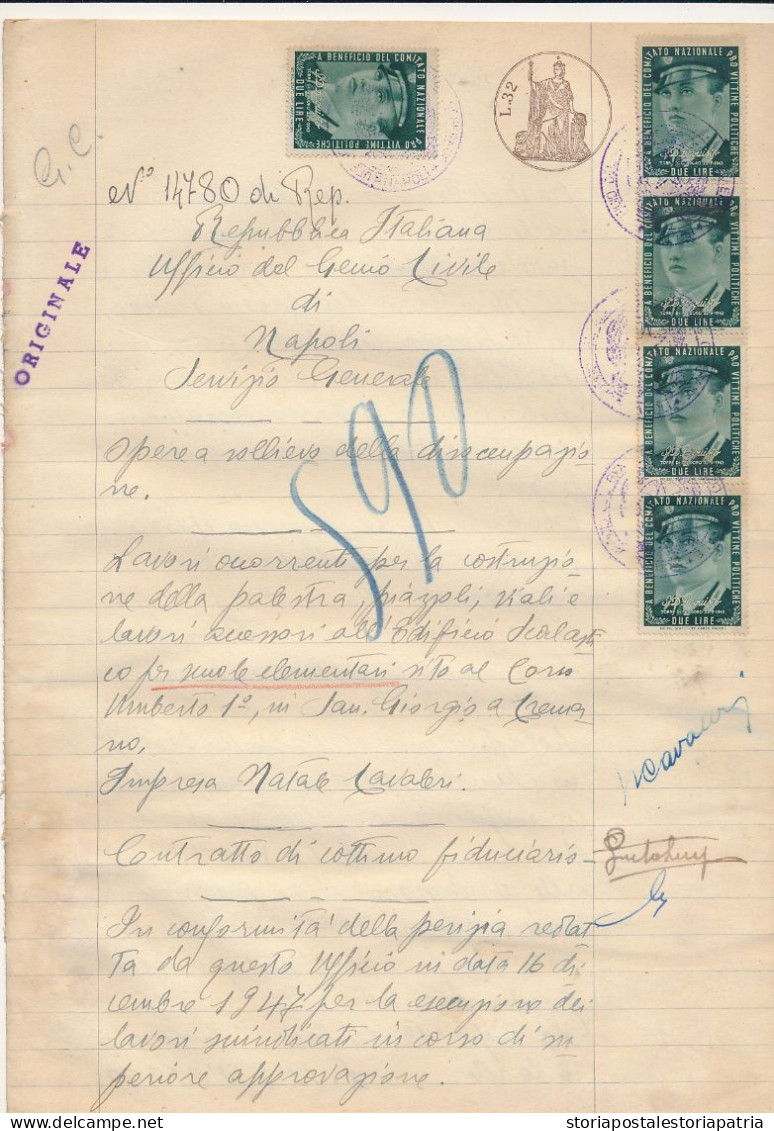 A BENEFICIO DEL COMITATO NAZIONALE PRO VITTIME POLITICHE
DUE LIRE
L.32
A BENEFICIO DEL COMITATO NAZIONALE PRO VITTIME POLITICHE
DUE LIRE
A BENEFICIO DEL COMITATO NAZIONALE PRO VITTIME POLITICHE
DUE LIRE
A BENEFICIO DEL COMITATO NAZIONALE PRO VITTIME POLITICHE
DUE LIRE
A BENEFICIO DEL COMITATO NAZIONALE PRO VITTIME POLITICHE
DUE LIRE
G. C.
ORIGINALE
N° 14780 di Rep.
Repubblica Italiana
Ufficio del Genio Civile
di
Napoli
Servizio Generale
590
Opere a sollievo della disoccupazio
ne.
Lavori occorrenti per la costruzio
ne della palestra, piazzali, viali e
lavori accessori all'Edificio Scolasti
co per scuole elementari sito al Corso
Umberto 1°, in San Giorgio a Crema
no.
Impresa Natale Cavaleri.
NCavaleri
Contratto di cottimo fiduciario
In conformità della perizia redat
ta da questo Ufficio in data 16 di
cembre 1947 per la esecuzione dei
lavori suindicati in corso di su
periore approvazione.
storiapostalestoriapatria